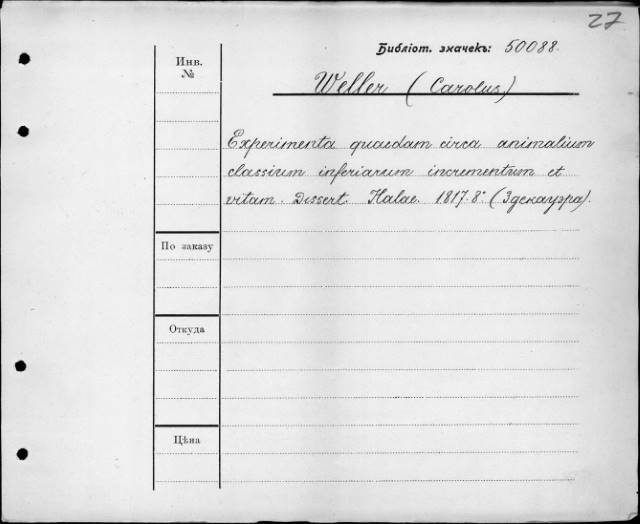 27
Библіот. значекъ: 50088.
Инв.
№
Weller (Carolus)
Experimenta quaedam circa animalium
classium inferiarum incrementum et
vitam. Dissert. Halae. 1817. 8º (Здекауэра).
По заказу
Откуда
Цѣна